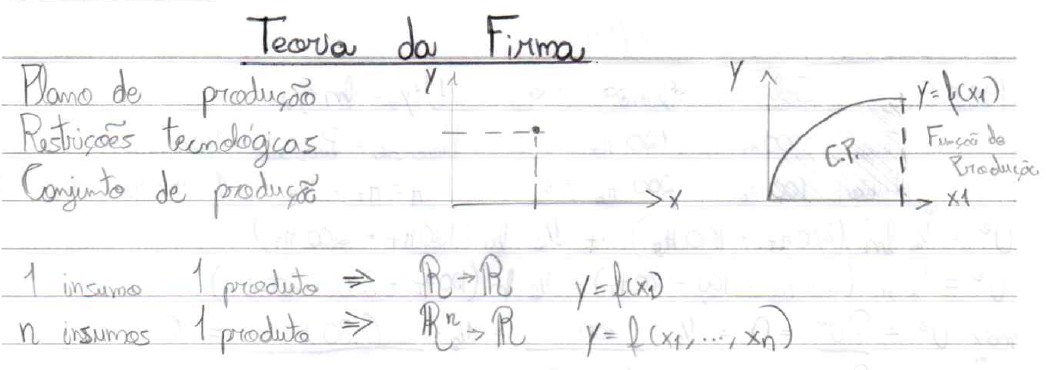 Teoria da Firma
Plano de produção
Restrições tecnológicas
Conjunto de produção
Y
X
Y
y=f(x1)
C.P.
Função de
Produção
x1
1 insumo 1 produto ⇒ ℝ→ℝ y=f(x1)
n insumos 1 produto ⇒ ℝⁿ→ℝ y=f(x1,...,xn)